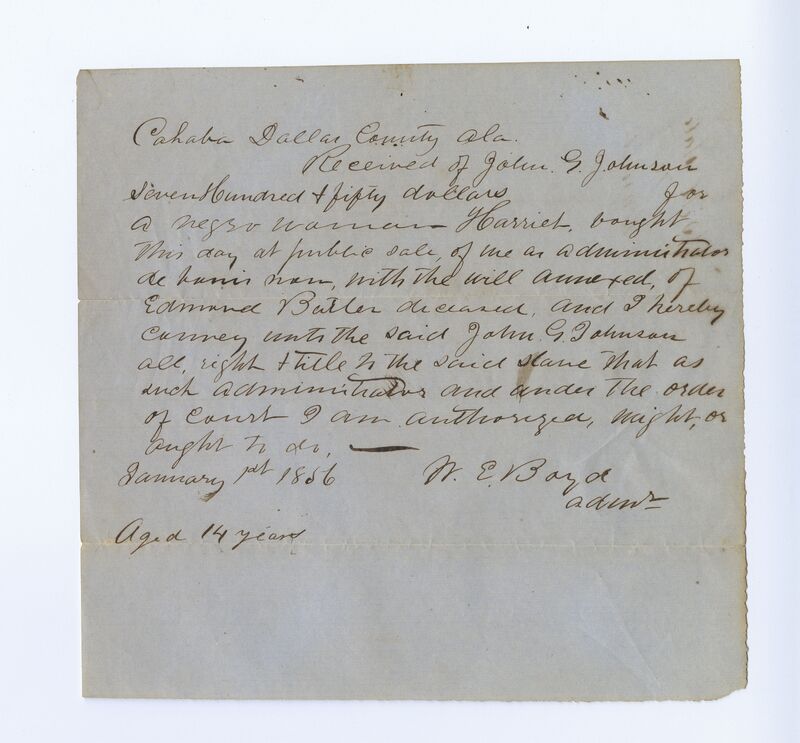 Cahaba Dallas County Ala.
Received of John. G. Johnson
Seven Hundred & fifty dollars for
a negro woman Harriet, bought
this day at public sale, of me as administrator
de bonis non, with the will annexed, of
Edmond Butler deceased, and I hereby
convey unto the said John G. Johnson
all, right & title to the said slave that as
such administrator and under the order
of Court I am authorized, might, or
ought to do,
January 1st 1856 W. E. Boyd
admr
Aged 14 years